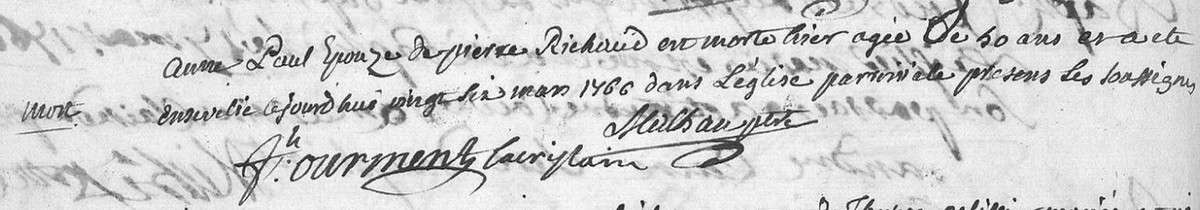 Anne Paul Epouze de pierre Richaud est morte hier agée De 50 ans et a eté
mort. Ensevelie cejourdhui vingt six mars 1766 dans L'église parroissiale presens les soussignés
J.h ourment sacristain